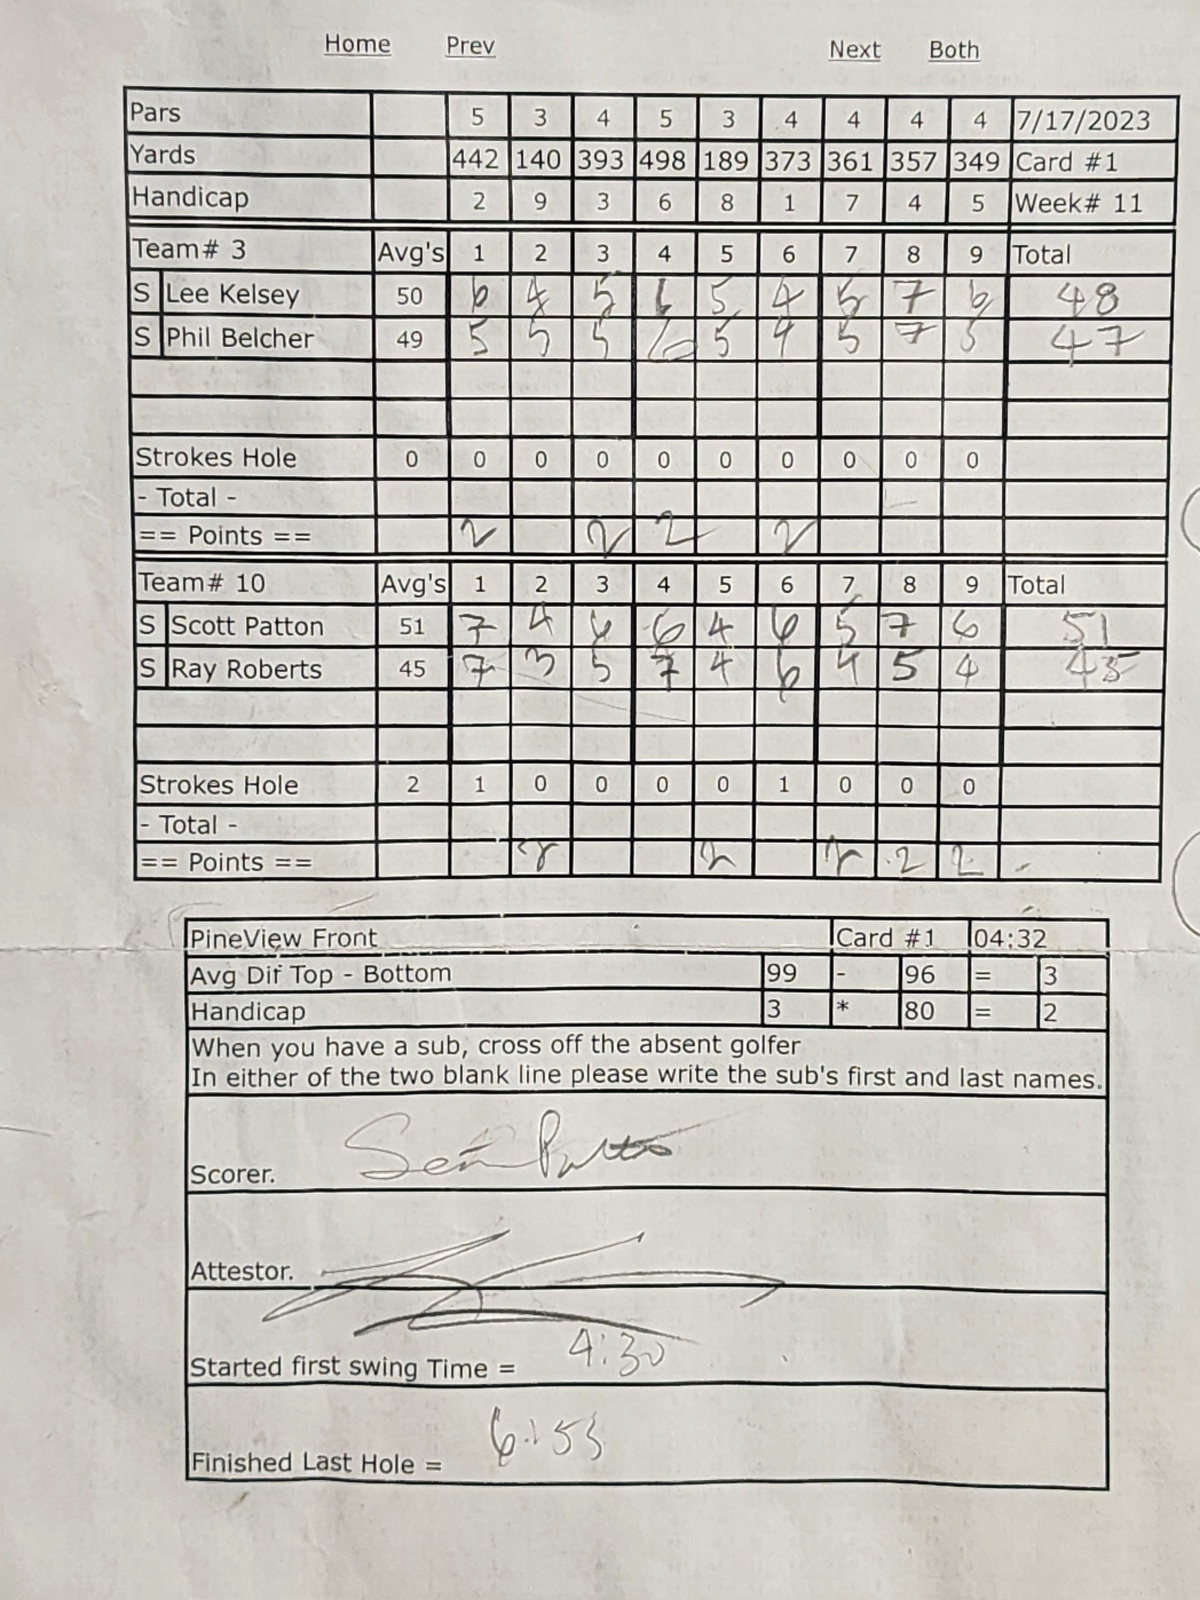 Home Prev Next Both
Pars 5 3 4 5 3 4 4 4 4 7/17/2023
Yards 442 140 393 498 189 373 361 357 349 Card #1
Handicap 2 9 3 6 8 1 7 4 5 Week# 11
Team# 3 Avg's 1 2 3 4 5 6 7 8 9 Total
S Lee Kelsey 50 6 4 5 6 5 4 5 7 6 48
S Phil Belcher 49 5 5 5 6 5 4 5 7 5 47
Strokes Hole 0 0 0 0 0 0 0 0 0 0
- Total -
== Points == 2 2 2 2
Team# 10 Avg's 1 2 3 4 5 6 7 8 9 Total
S Scott Patton 51 7 4 6 6 4 6 5 7 6 51
S Ray Roberts 45 7 3 5 7 4 6 4 5 4 45
Strokes Hole 2 1 0 0 0 0 1 0 0 0
- Total -
== Points == 2 2 2 2
PineView Front Card #1 04:32
Avg Dif Top - Bottom 99 - 96 = 3
Handicap 3 * 80 = 2
When you have a sub, cross off the absent golfer
In either of the two blank line please write the sub's first and last names.
Scorer.
Attestor.
Started first swing Time = 4:30
Finished Last Hole = 6:53